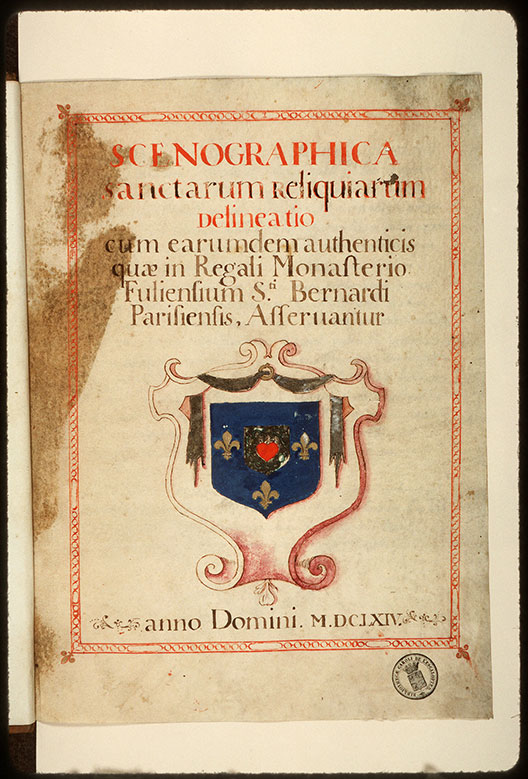 SCENOGRAPHICA
sanctarum Reliquiarum
Delineatio
cum earumdem authenticis
quæ in Regali Monaſterio
Fulienſium S.ti Bernardi
Pariſienſis, Aſſeruantur
anno Domini. M.DCLXIV